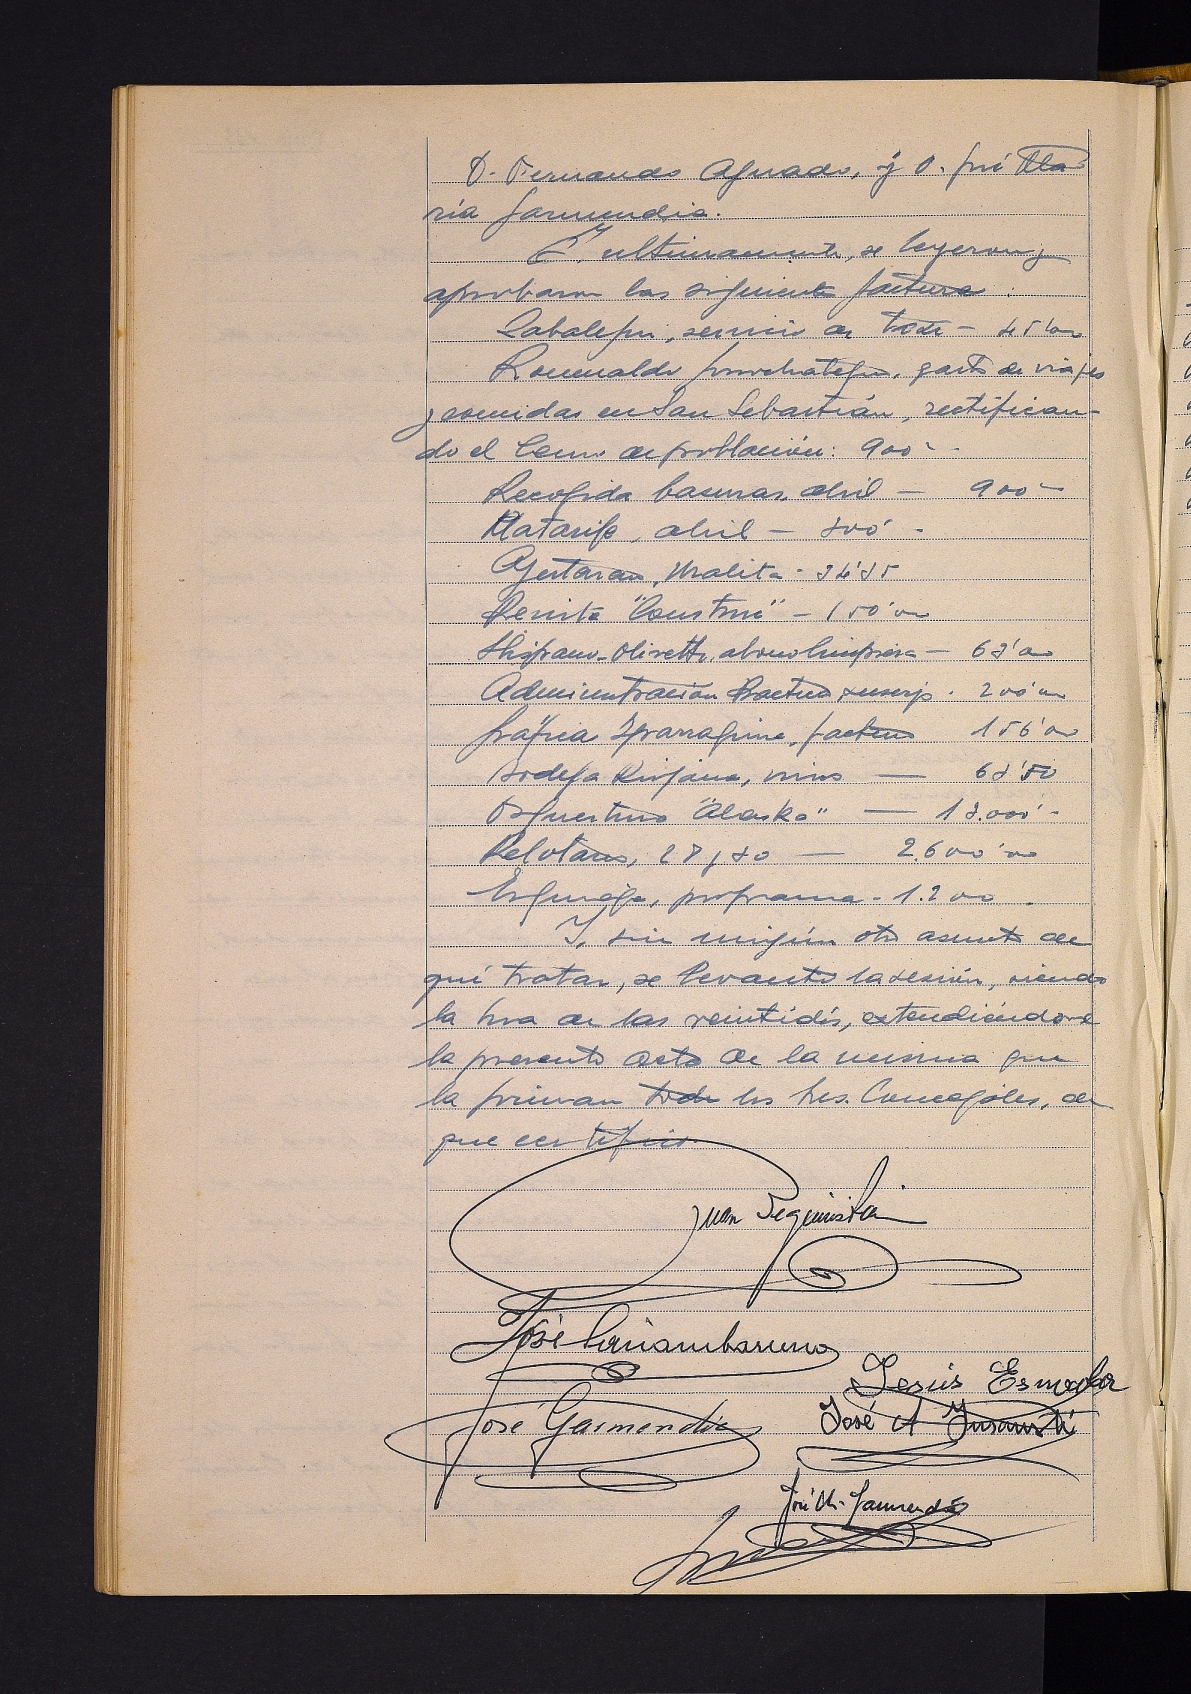 D. Fernando Aguado, y D. José Ma-
ría Garmendia.
Y, ultimamente, se leyeron y
aprobaron las siguientes facturas:
Zabalegui, servicio de taxi - 45'00
Romualdo gasto de viajes
y comidas en San Sebastián, rectifican-
do el Censo de población: 900'-
Recogida basuras, abril — 900'-
Matarife, abril — 800'-
Uralita -
Revista "Construc" - 150'00
Hispano-Olivetti, abono limpieza - 63'00
Administración Práctica, suscrip. 200'00
Gráfica Yparraguirre, facturas 156'00
Bodega Riojana, vinos — 63'50
Orquestina "Alaska" — 13.000'-
Pelotaris, 28 y 30 — 2.600'00
programa - 1.200
Y, sin ningún otro asunto de
qué tratar, se levantó la sesión, siendo
la hora de las veintidós, extendiéndose
la presente acta de la misma que
la firman todos los Sres. Concejales, de
que certifico.
Juan Beguiristain
José
Jesús Esnaola
José Garmendia
José A Insausti
José M. Garmendia